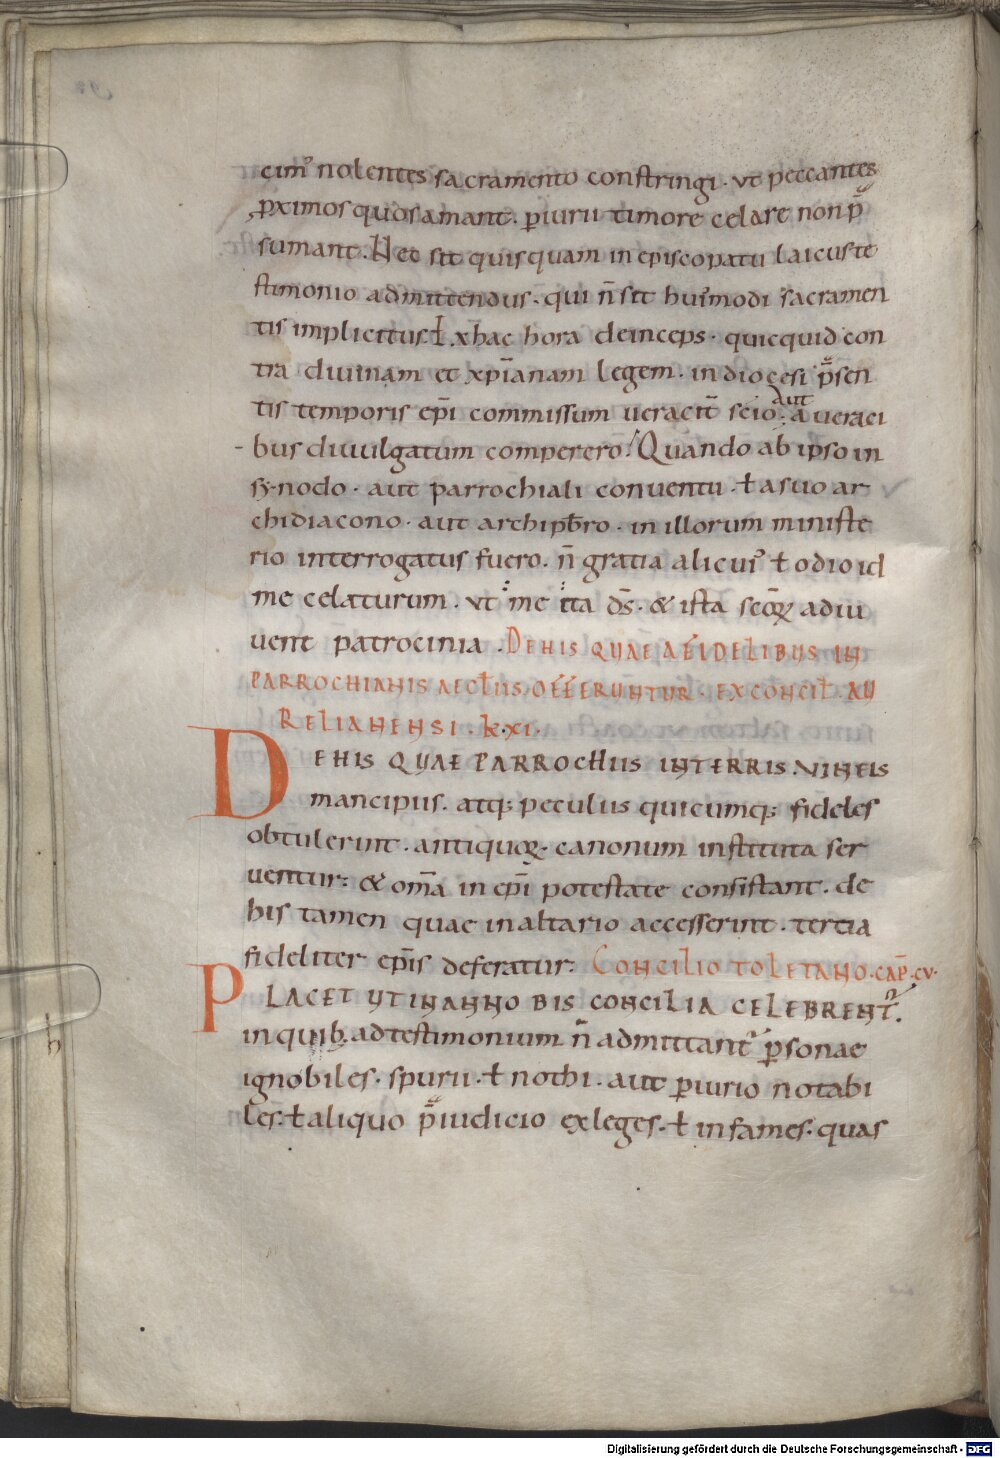 cim᾿ nolentes sacramento constringi· ut peccantes
ꝓximos quos amant· ꝑiurii timore celare non p̄
sumant. Nec sit quisquam in episcopatu laicus te
stimonio admittendus· qui n̄ sit hui᾿modi sacramen
tis implicitus. Ex hac hora deinceps· quicquid con
tra diuinam et xp̄ianam legem· in diocesi p̄sen
tis temporis ep̄i commissum ueracit̄ scio· aut a ueraci
bus diuulgatum comperero. Quando ab ipso in
synodo· aut parrochiali conuentu· ł a suo ar
chidiacono· aut archipb̄ro· in illorum ministe
rio interrogatus fuero· n̄ gratia alicui᾿ ł odio id
me celaturum· ut me ita d̄s· & ista sc̄oꝝ adiu
uent patrocinia· DE HIS QUAE A FIDELIBUS IN
PARROCHIANIS AECCL̄IIS OFFERUNTUR· EX CONCIL̄· AU
RELIANENSI· k· xi·
DE HIS QUAE PARROCHIIS IN TERRIS· VINEIS
mancipiis· atq; peculiis quicumq; fideles
obtulerint· antiquoꝝ· canonum instituta ser
uentur: & om̄a in ep̄i potestate consistant· de
his tamen quae in altario accesserint· tertia
fideliter ep̄is deferatur: CONCILIO TOLETANO· CAP̄· CV·
PLACET UT IN ANNO BIS CONCILIA CELEBRENT᾿·
in quib; ad testimonium n̄ admittant᾿ ꝑsonae
ignobiles· spurii· ł nothi· aut ꝑiurio notabi
les· ł aliquo p̄iudicio exleges· ł infames· quas
Digitalisierung gefördert durch die Deutsche Forschungsgemeinschaft - DFG